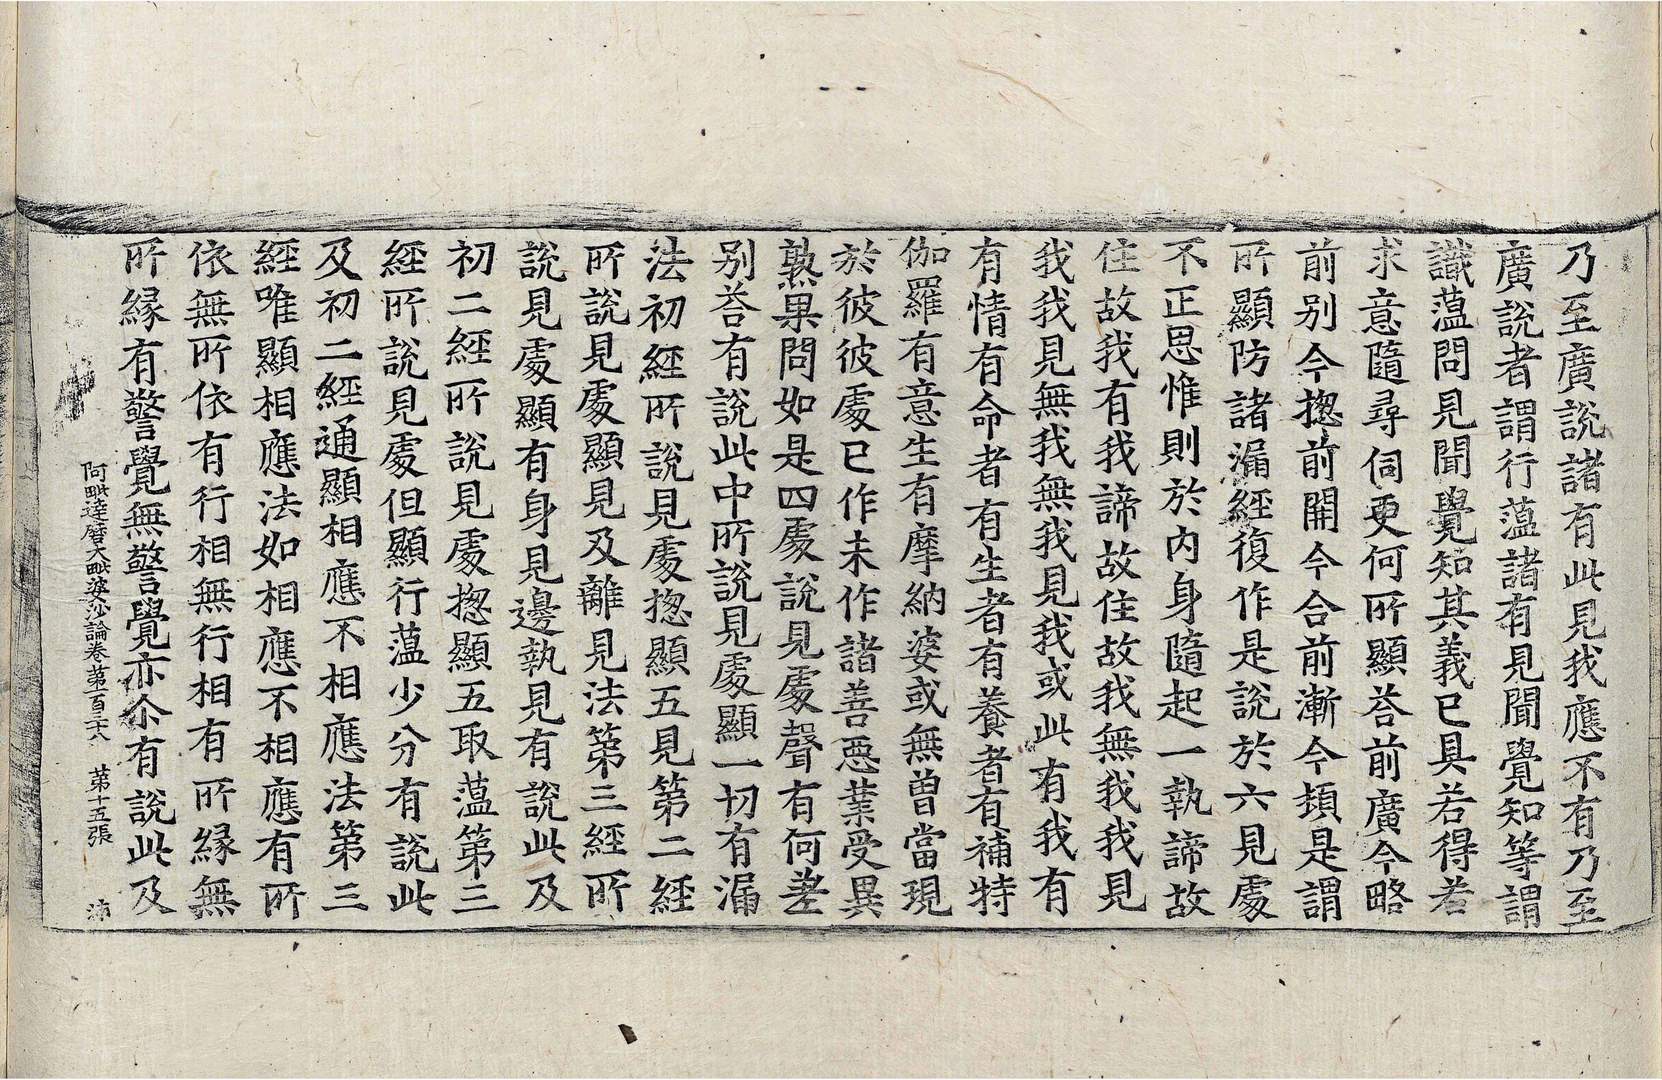 乃至廣說諸有此見我應不有乃至
廣說者謂行薀諸有見聞覺知等謂
識薀問見聞覺知其義已具若得若
求意隨尋伺更何所顯荅前廣今略
前別今揔前開今合前漸今頓是謂
所顯防諸漏經復作是說於六見處
不正思惟則於內身隨起一執諦故
住故我有我諦故住故我無我我見
我我見無我我無我見我或此有我有
有情有命者有生者有養者有補特
伽羅有意生有摩納婆或無曾當現
於彼彼處已作未作諸善惡業受異
熟果問如是四處說見處聲有何差
別荅有說此中所說見處顯一切有漏
法初經所說見處揔顯五見第二經
所說見處顯見及離見法第三經所
說見處顯有身見邊執見有說此及
初二經所說見處揔顯五取薀第三
經所說見處但顯行薀少分有說此
及初二經通顯相應不相應法第三
經唯顯相應法如相應不相應有所
依無所依有行相無行相有所緣無
所緣有警覺無警覺亦尒有說此及
阿毗達磨大毗婆沙論卷第一百三十八 第十五張 沛